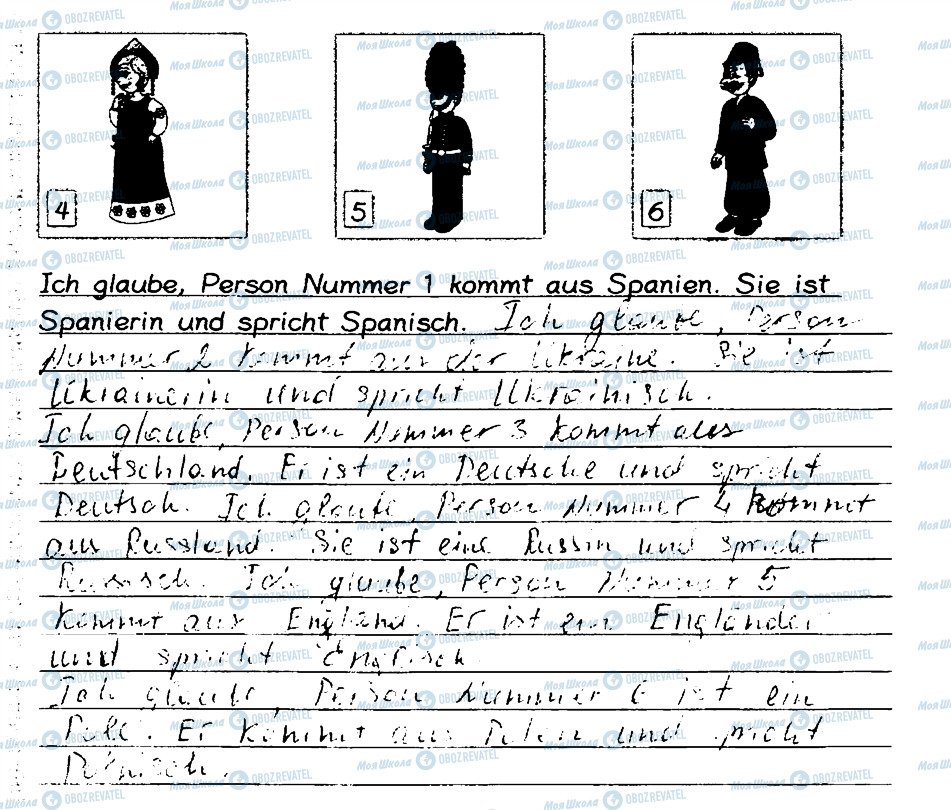 4 5 6
Ich glaube, Person Nummer 1 kommt aus Spanien. Sie ist
Spanierin und spricht Spanisch. Ich glaube, Person
Nummer 2 kommt aus der Ukraine. Sie ist
Ukrainerin und spricht Ukrainisch.
Ich glaube, Person Nummer 3 kommt aus
Deutschland. Er ist ein Deutsche und spricht
Deutsch. Ich glaube, Person Nummer 4 kommt
aus Russland. Sie ist eine Russin und spricht
Russisch. Ich glaube, Person Nummer 5
kommt aus England. Er ist ein Engländer
und spricht Englisch.
Ich glaube, Person Nummer 6 ist ein
Pole. Er kommt aus Polen und spricht
Polnisch.
Моя Школа OBOZREVATEL